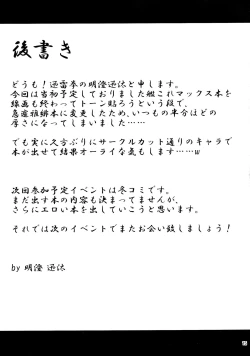 後書き
どうも！迅雷拳の明澄迅沫と申します。
今回は当初予定しておりました艦これマックス本を
線画も終わってトーン貼ろうという段で、
急遽雅緋本に変更したため、いつもの半分ほどの
厚さになってしまいました……
でも実に久方ぶりにサークルカット通りのキャラで
本が出せて結果オーライな気もします……w
次回参加予定イベントは冬コミです。
まだ出す本の内容も決まってませんが、
さらにエロい本を出していこうと思います。
それでは次のイベントでまたお会い致しましょう！
by 明澄